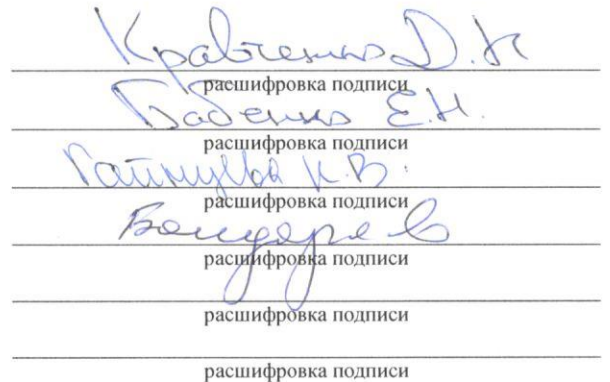 Кравченко Д.Н
расшифровка подписи
Бабенко Е.Н.
расшифровка подписи
К.В.
расшифровка подписи
расшифровка подписи
расшифровка подписи
расшифровка подписи